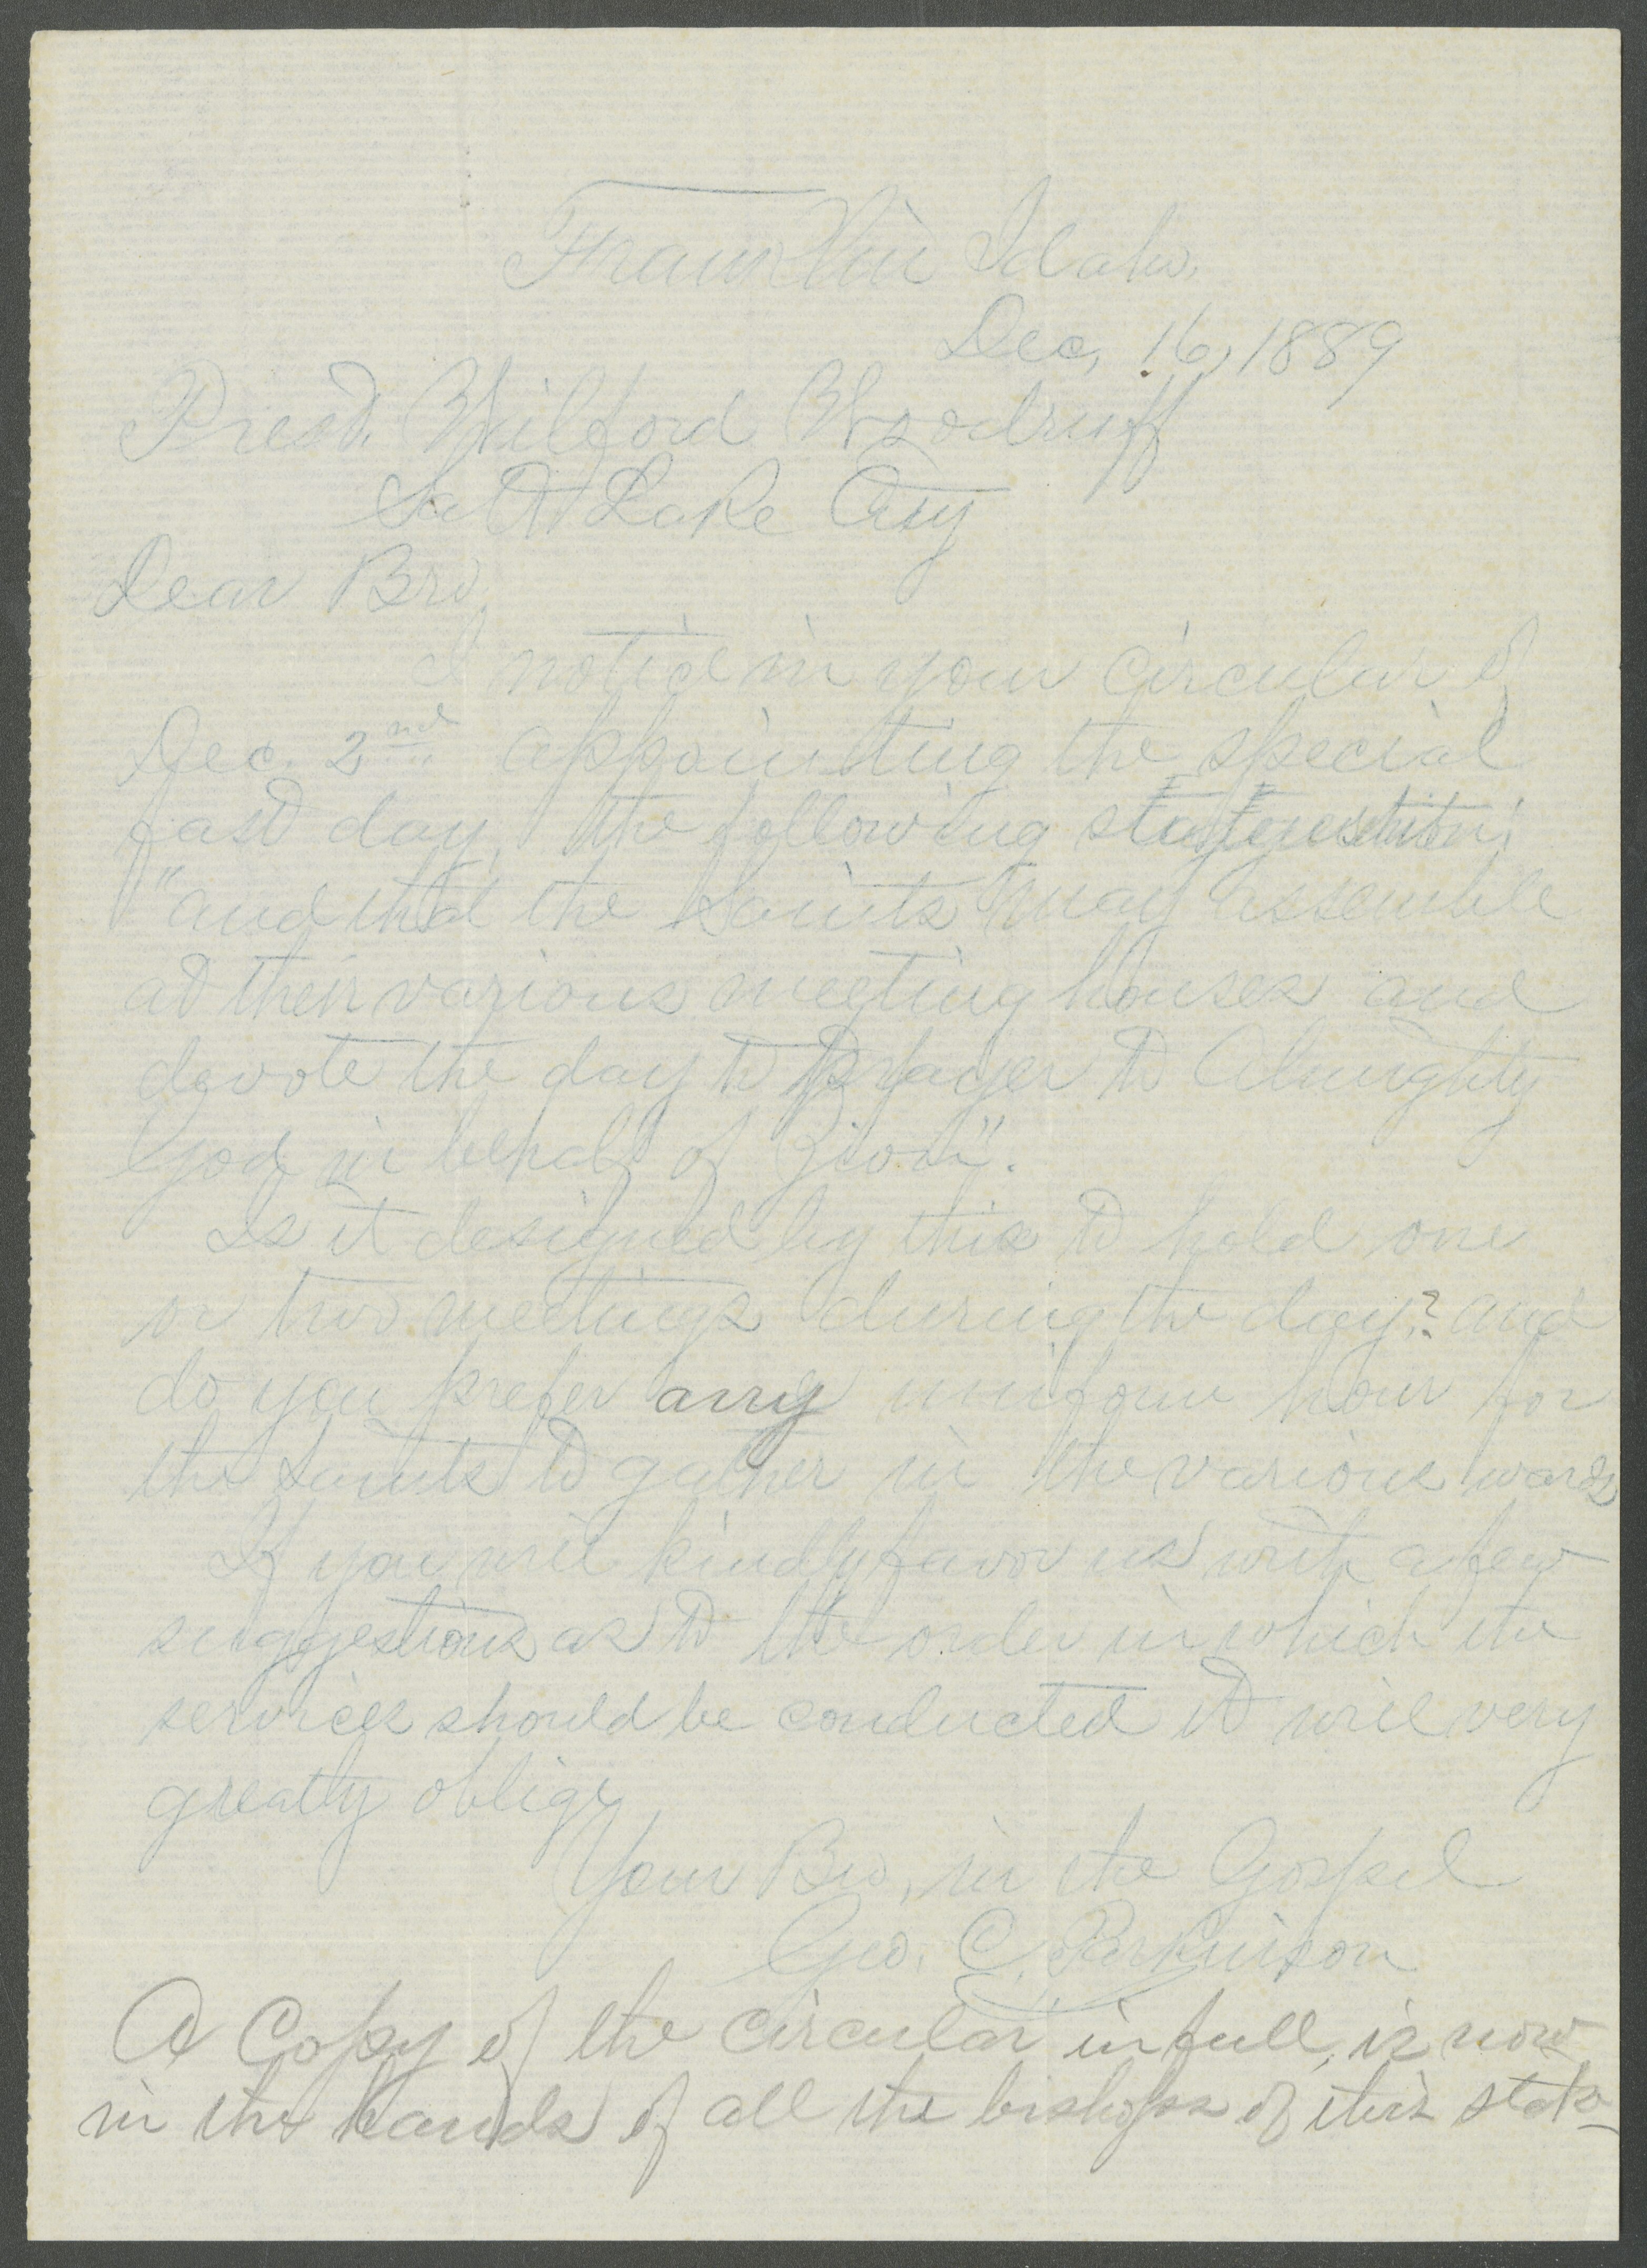 Franklin Idaho.
Dec, 16, 1889
Prest. Wilford Woodruff
Salt Lake City
Dear Bro,
I notice in your circular of
Dec. 2nd appointing the special
fast day, the following
"and that the Saints may assemble
at their various meeting houses and
devote the day to prayer to Almighty
God in behalf of Zion".
Is it designed by this to hold one
or two meetings during the day? and
do you prefer any uniform hour for
the Saints to gather in the various wards
If you will kindly favor us with a few
suggestions as to the order in which the
services should be conducted it will very
greatly oblige
Your Bro, in the Gospel
Geo. C. Parkinson
A Copy of the circular in full, is now
in the hands of all the bishops of this stake